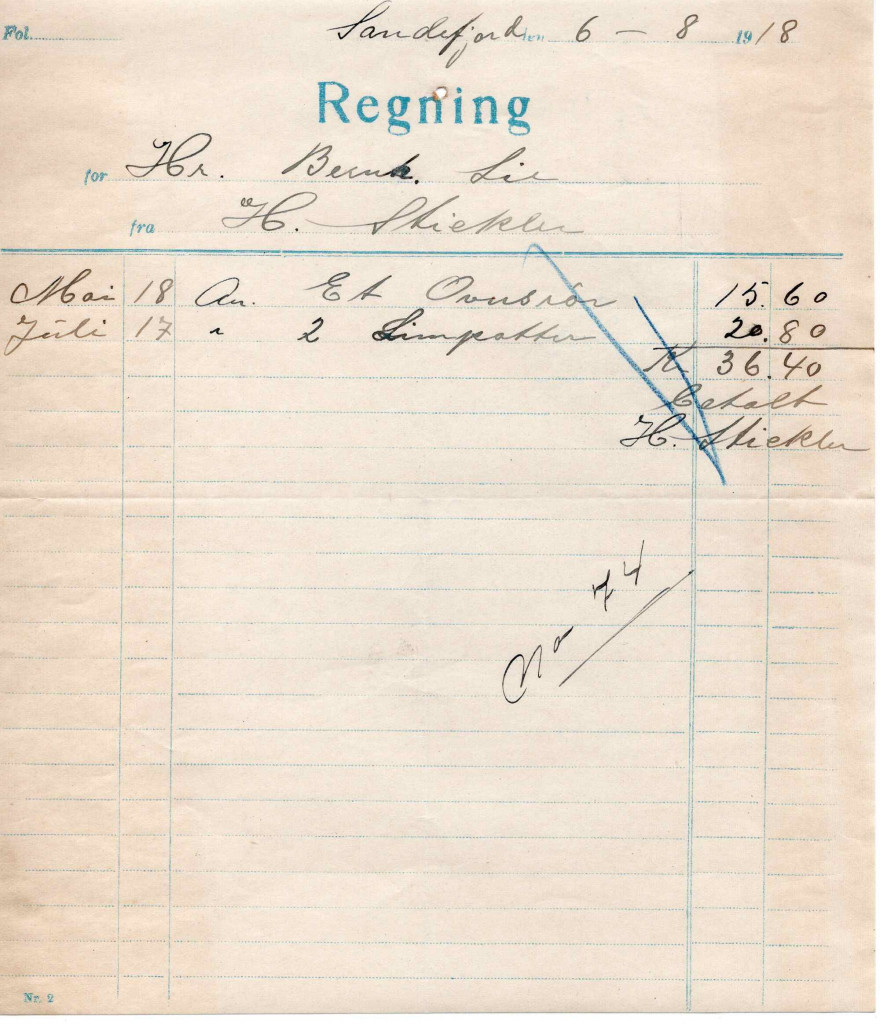 Fol. Sandefjord den 6 - 8 1918
Regning
for Hr. Bernh. Lie
fra H. Stickler
Mai 18 An. Et Ovnsrör 15.60
Júli 17 " 2 Limpotter 20.80
K. 36.40
Betalt
H. Stickler
No 74
Nr. 2